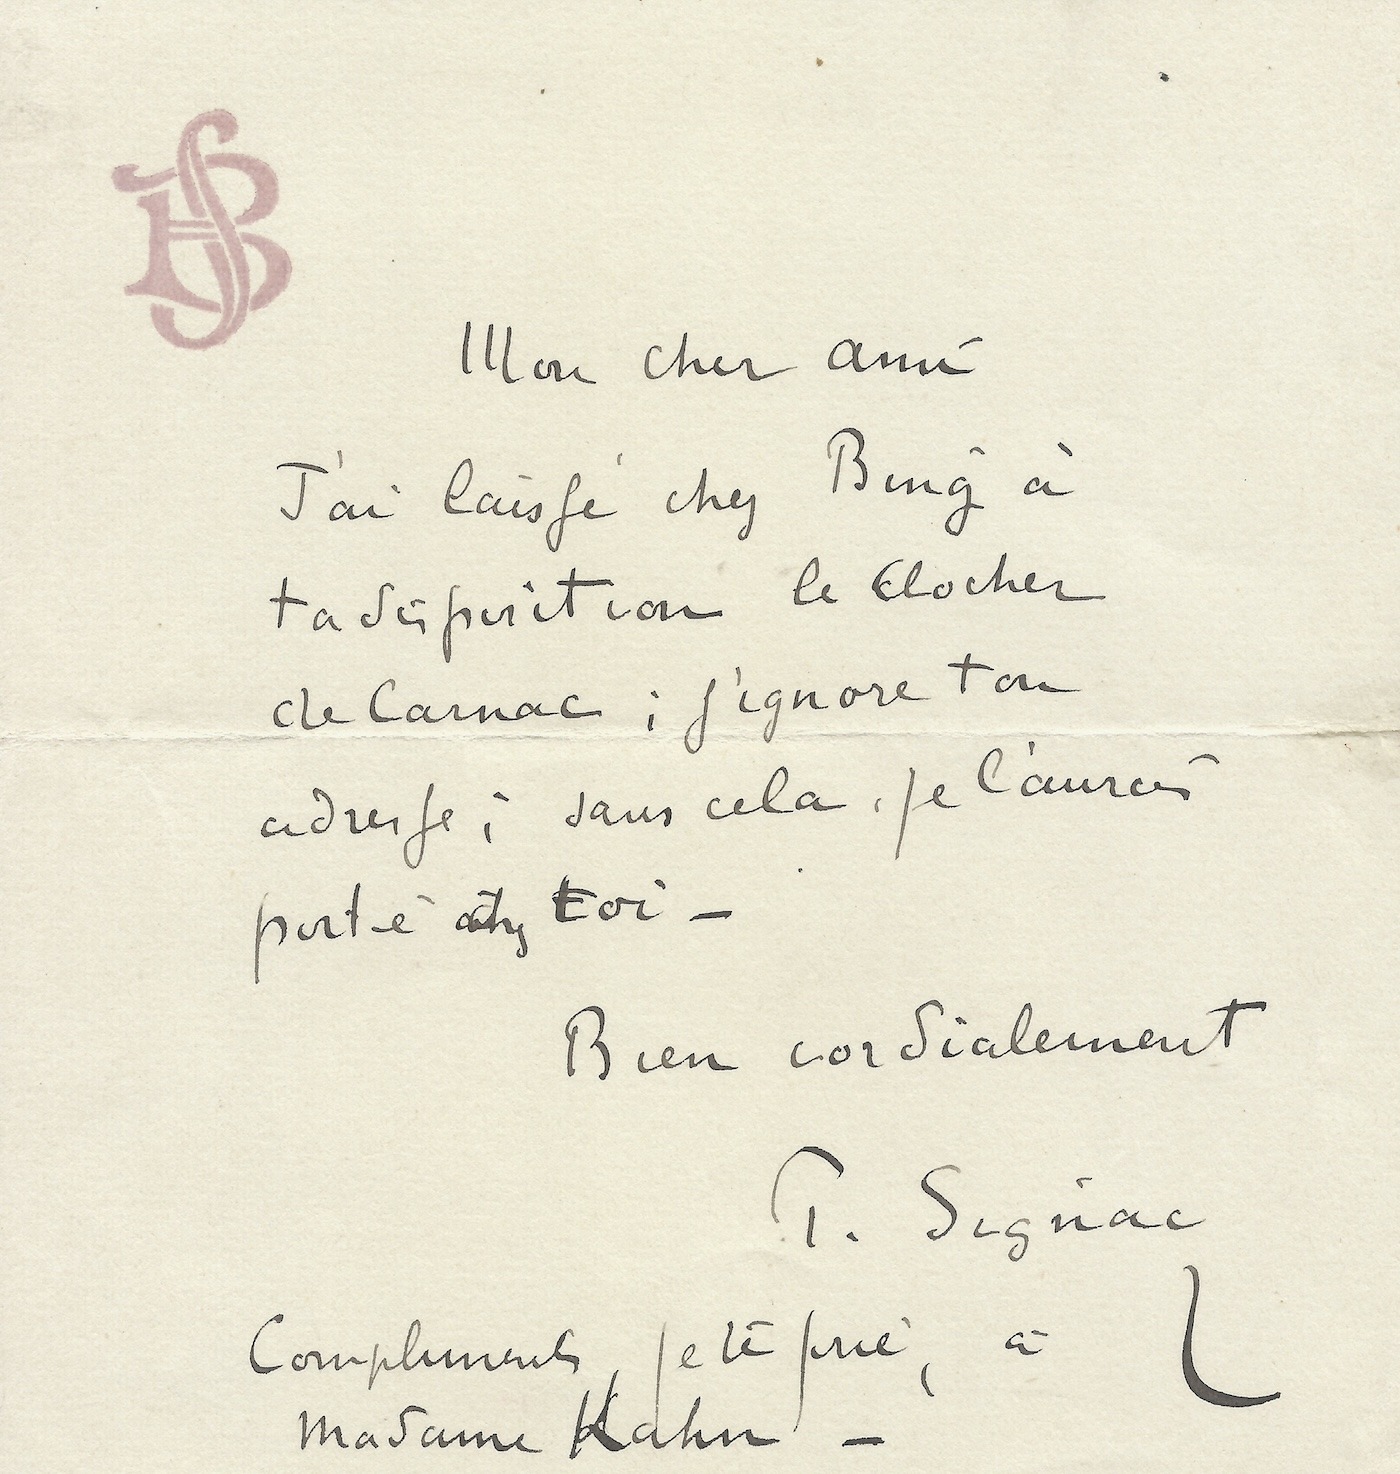 SB
Mon cher ami
J'ai laissé chez Bing à
ta disposition le Clocher
de Carnac ; j'ignore ton
adresse ; sans cela, je l'aurais
porté chez toi –
Bien cordialement
P. Signac
Compliments, je te prie, à
Madame Kahn –